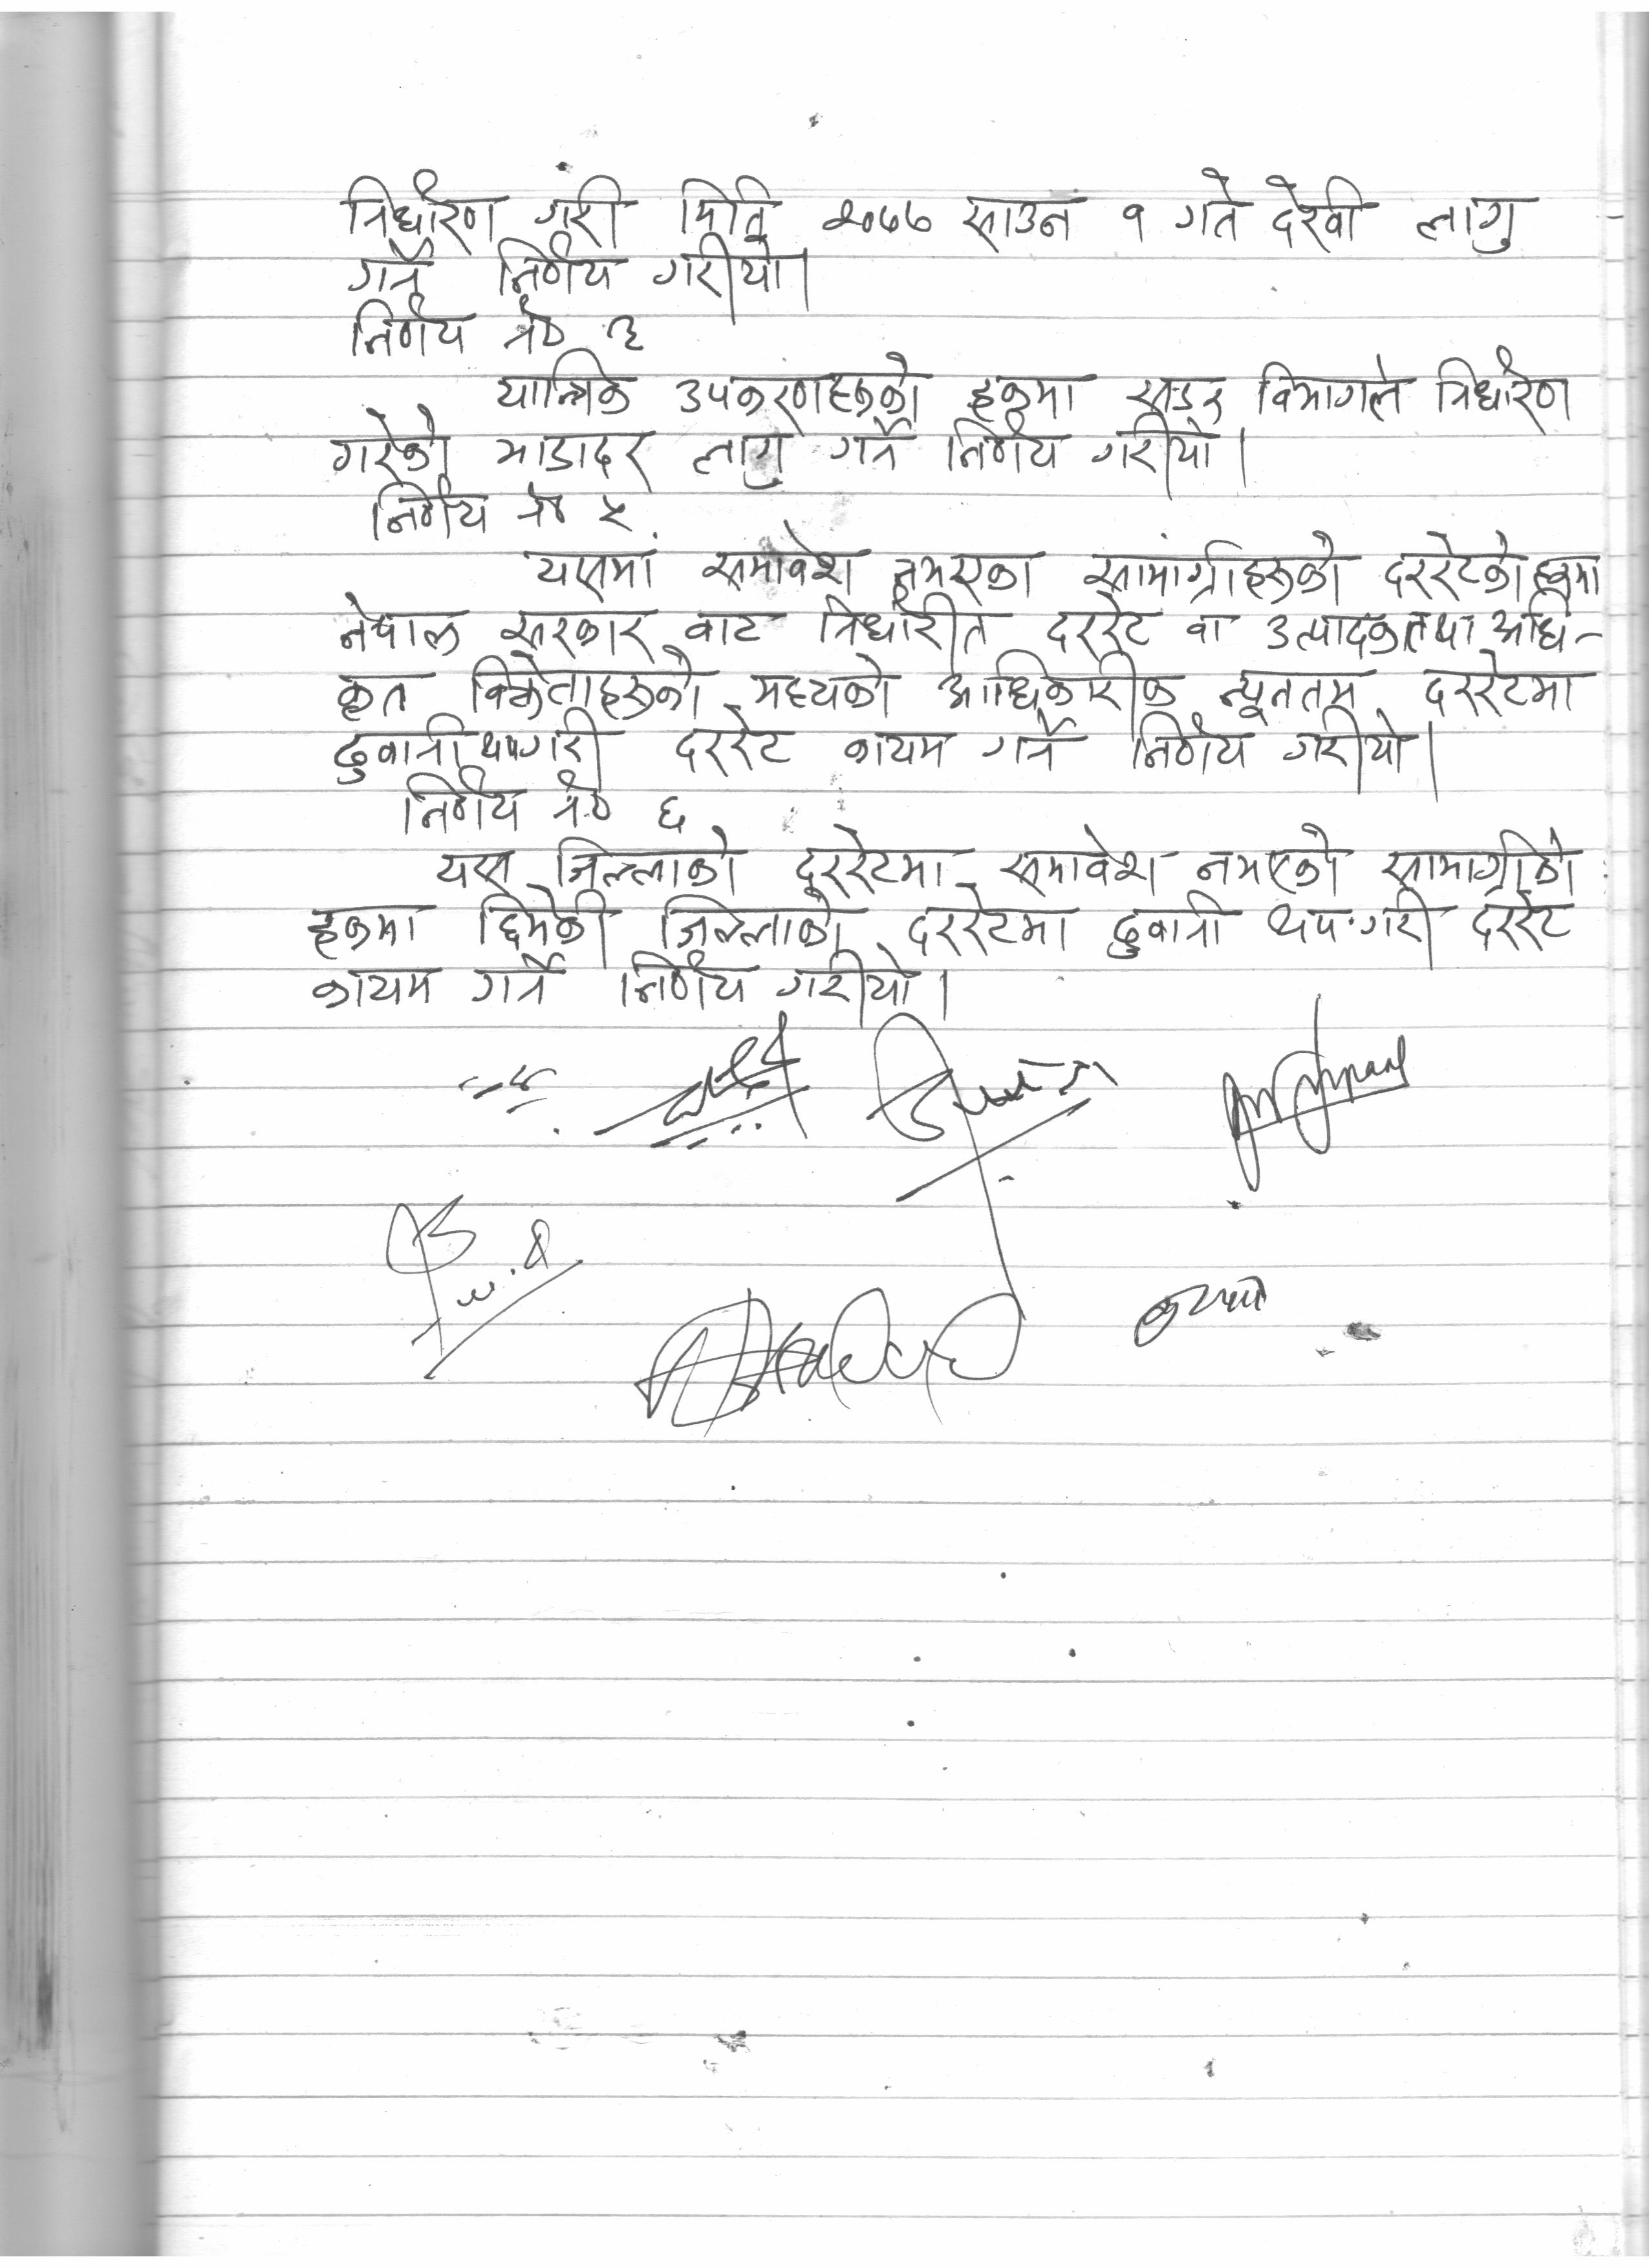 निर्धारण गरी मिति २०७७ साउन १ गते देखी लागु
गर्ने निर्णय गरीयो।
निर्णय नं०
यान्त्रिक उपकरणहरुको हकमा सडक विभागले निर्धारण
गरेको भाडादर लागु गर्ने निर्णय गरीयो।
निर्णय नं० ५
यसमा समावेश नभएका सामाग्रीहरुको दररेटको हकमा
नेपाल सरकार बाट निर्धारीत दररेट वा उत्पादक तथा आधि-
कृत विक्रेताहरुको मध्यको आधिकारीक न्यूनतम दररेटमा
ढुवानी थपगरी दररेट कायम गर्ने निर्णय गरीयो।
निर्णय नं० ६
यस जिल्लाको दररेटमा समावेश नभएको सामाग्रीको
हकमा छिमेकी जिल्लाको दररेटमा ढुवानी थप गरी दररेट
कायम गर्ने निर्णय गरीयो।